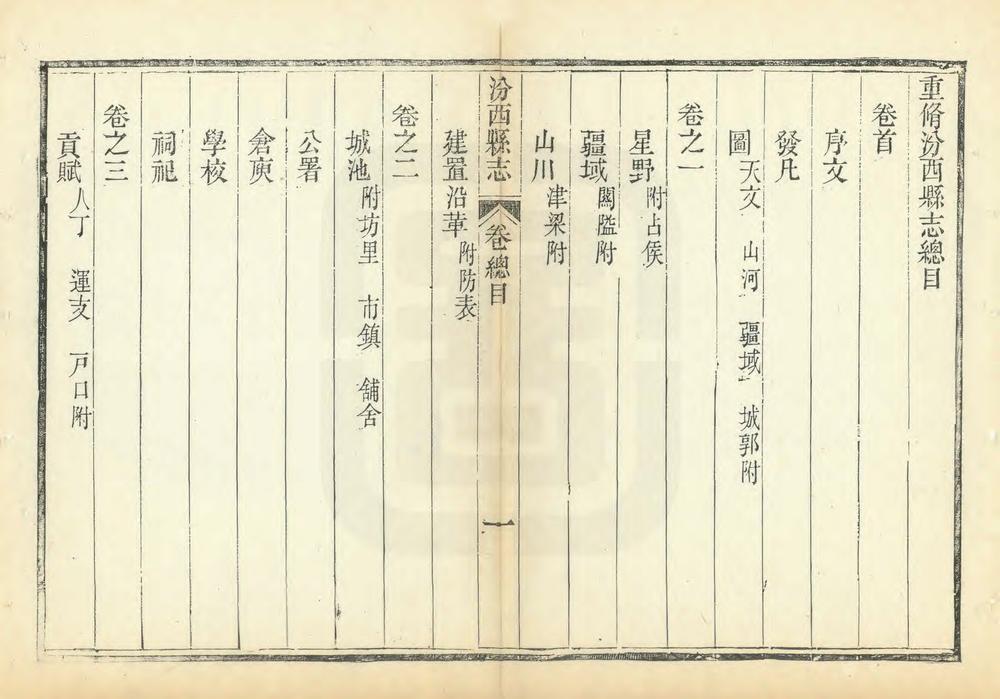 重脩汾西縣志總目
卷首
序文
發凡
圖 天文 山河 疆域 城郭附
卷之一
星野 附占侯
疆域 關隘附
山川 津梁附
汾西縣志 卷總目 一
建置沿革 附防表
卷之二
城池 附坊里 市鎮 舖舍
公署
倉庾
學校
祠祀
卷之三
貢賦 人丁 運支 戸口附